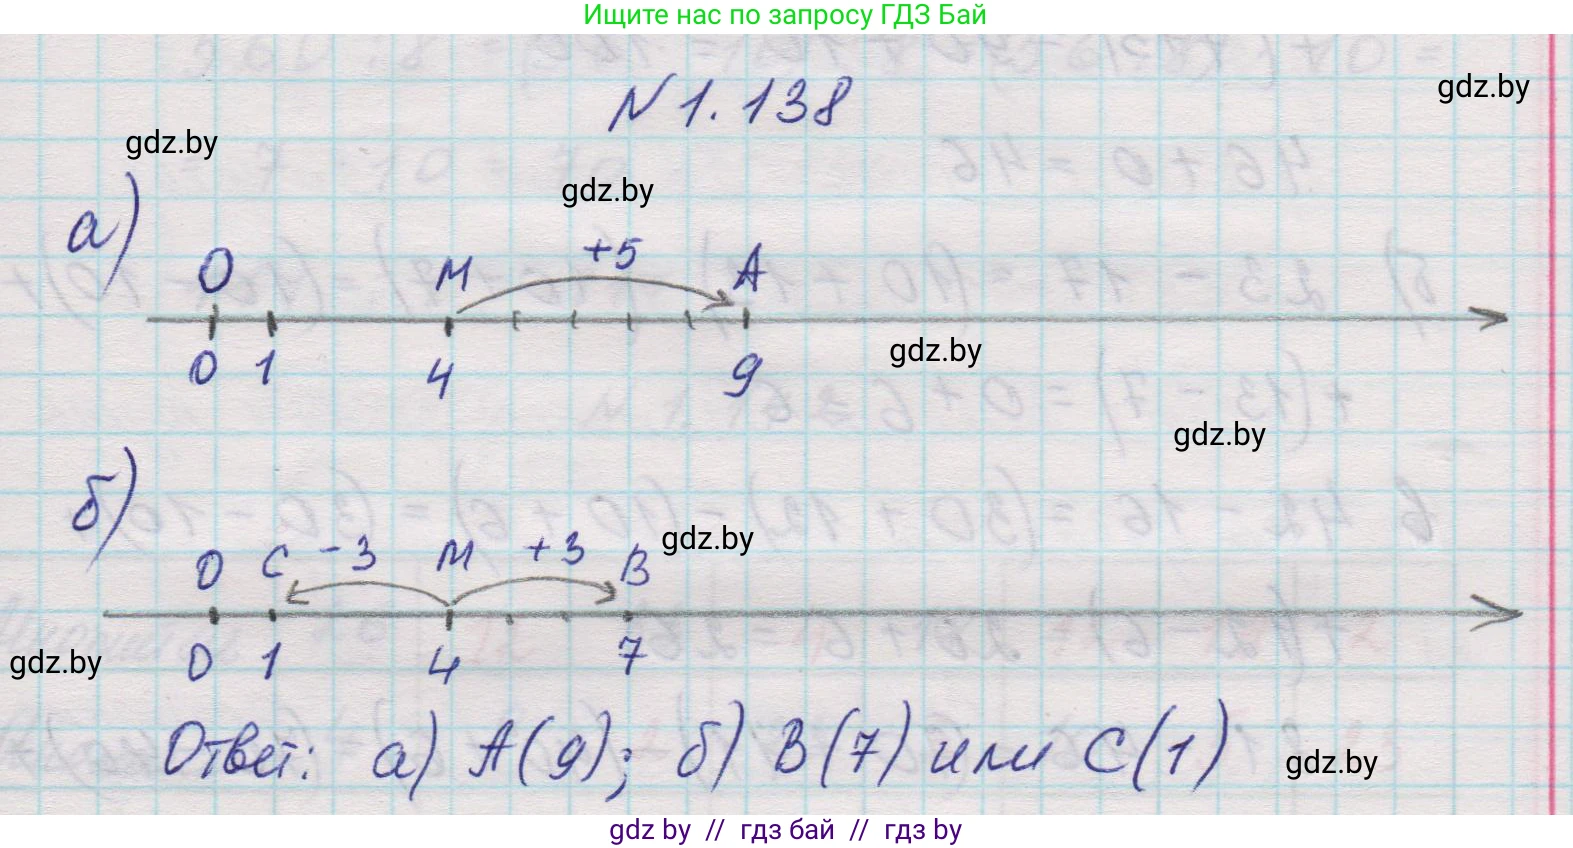 Ищите нас по запросу ГДЗ Бай
N 1.138
gdz.by
gdz.by
gdz.by
а)
O M +5 A
0 1 4 9
gdz.by
gdz.by
б)
O C -3 M +3 B
gdz.by
0 1 4 7
gdz.by
Ответ: а) A(9); б) B(7) или C(1)
gdz.by
gdz by // гдз бай // гдз by